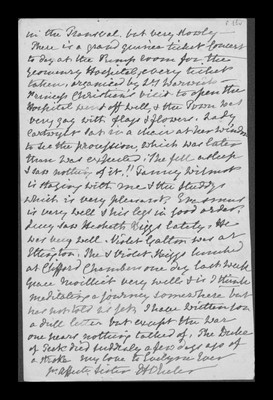 in the Transvaal. but very slowly
There is a grand guinea ticket Concert
today at the Pump room for the
Hospital, every ticket
taken, organized by Lady Warwick
Princess Christian's visit to open the
Hospital went off well, & the Town was
very gay with flags & flowers. Lady
Cartwright sat in a chair at her window
to see the procession, which was later
than was expected. She fell asleep
& saw nothing of it!! Fanny Wilmot
is staying with me & the Studdys
which is very pleasant. Erasmus
is very well & his leg in good order.
Lucy saw Hesketh Biggs lately. He
was very well. Violet Galton was at
Ettington. She & Violet Biggs lunched
at Clifford Chambers one day last week
Grace Moilliet very well & is I think
meditating a journey somewhere but
has not told us yet. I have written you
a dull letter but except the War
one hears nothing talked of. The Duke
of Teck died suddenly a few days ago of
a stroke my love to Evelyne Ever
Yr affect. Sister E A Wheler